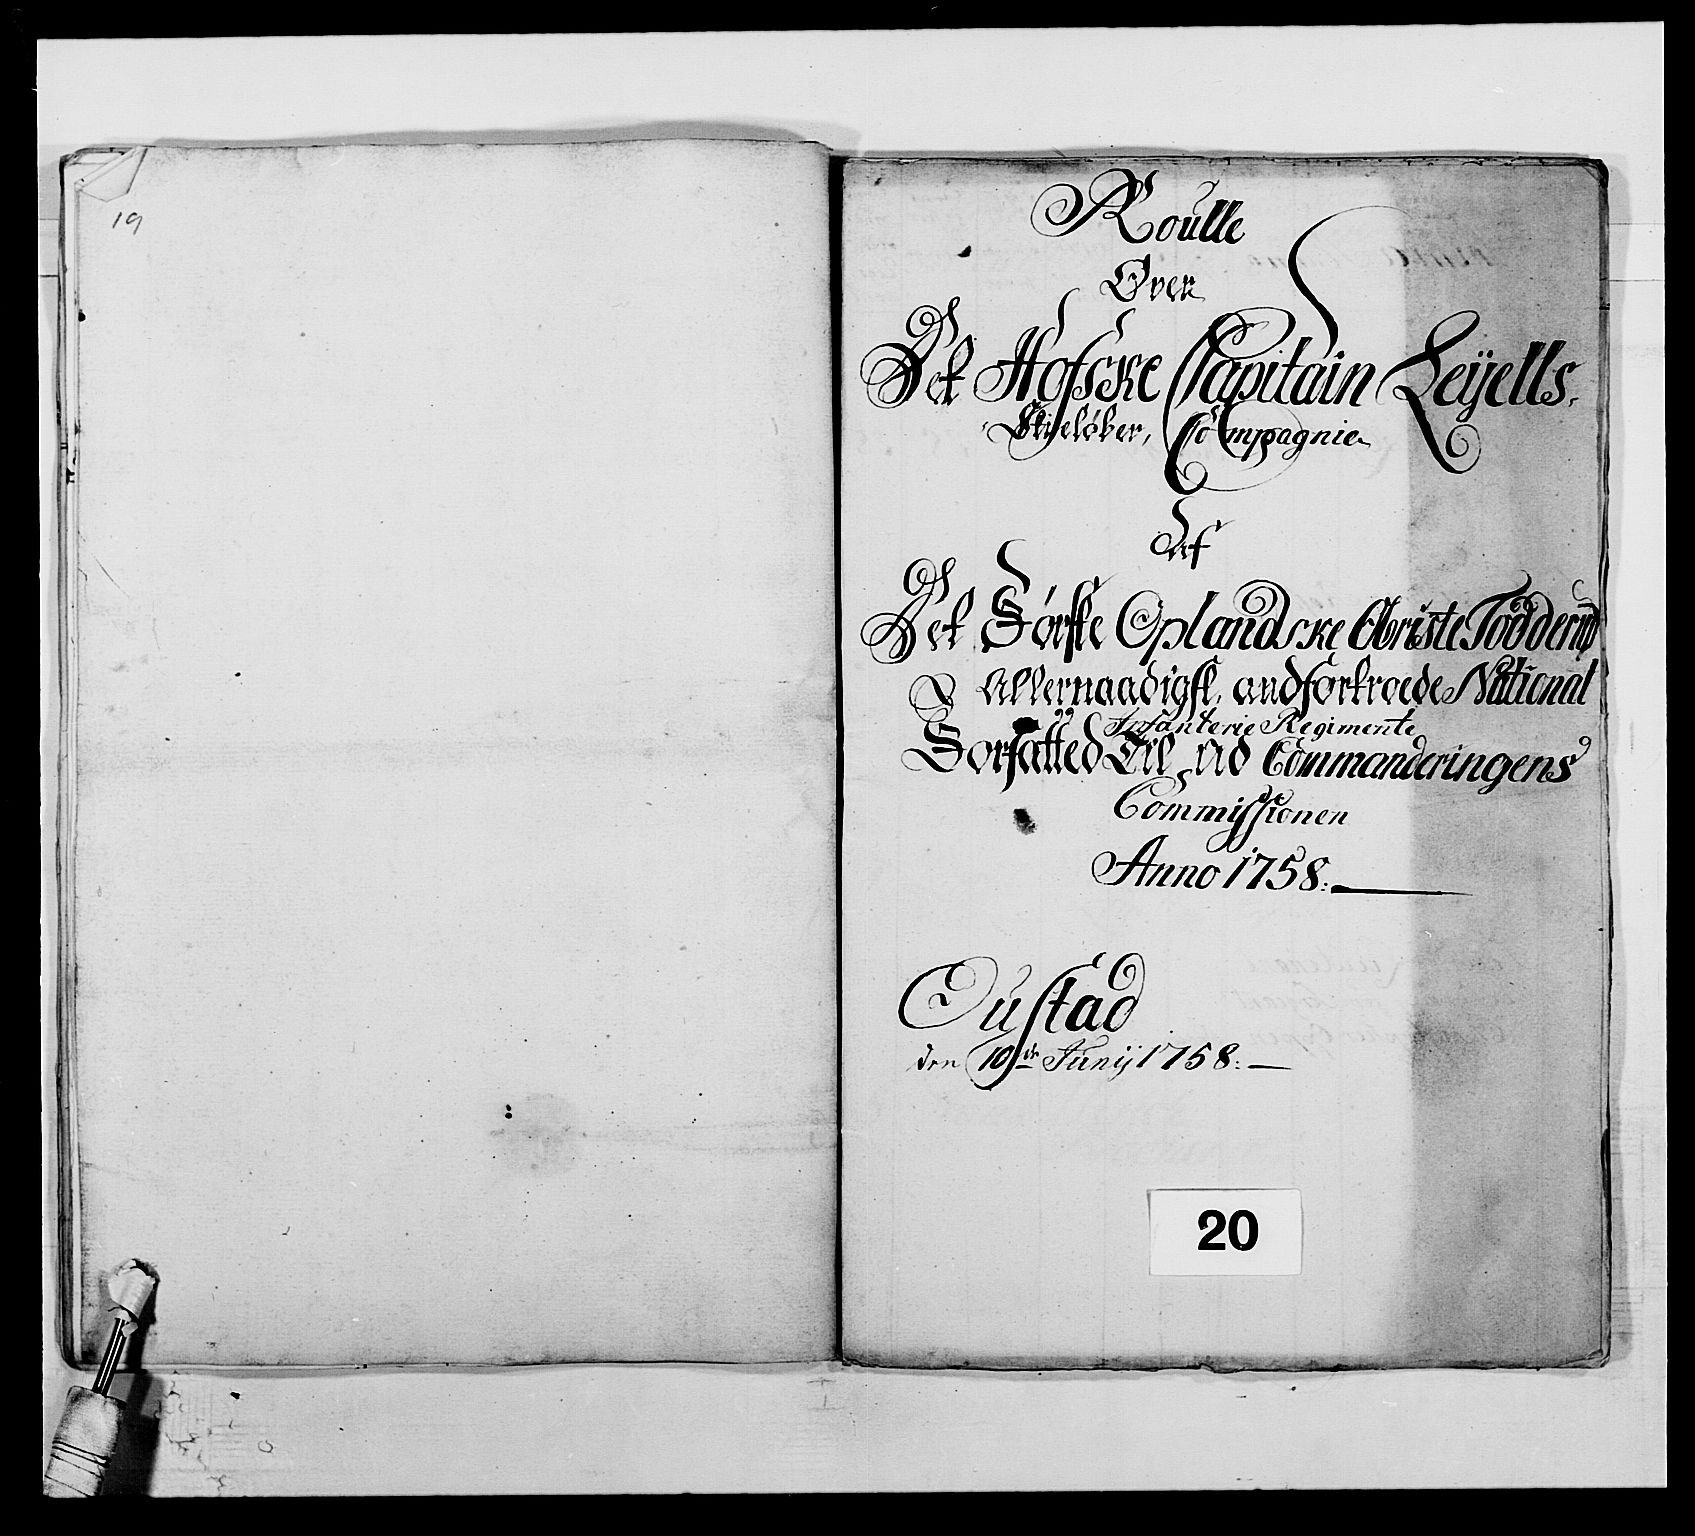 19
Roulle
Over
Det Hofske Capitain Leijells.
Skieløber, Compagnie
Af
Det Første Oplandske Obriste Todderud
Allernaadigst, andførtroede National
Infanterie Regimente
Forfatted til ud Commanderingens
Commissionen
Anno 1758:
Oustad
den 10de Junij 1758:
20